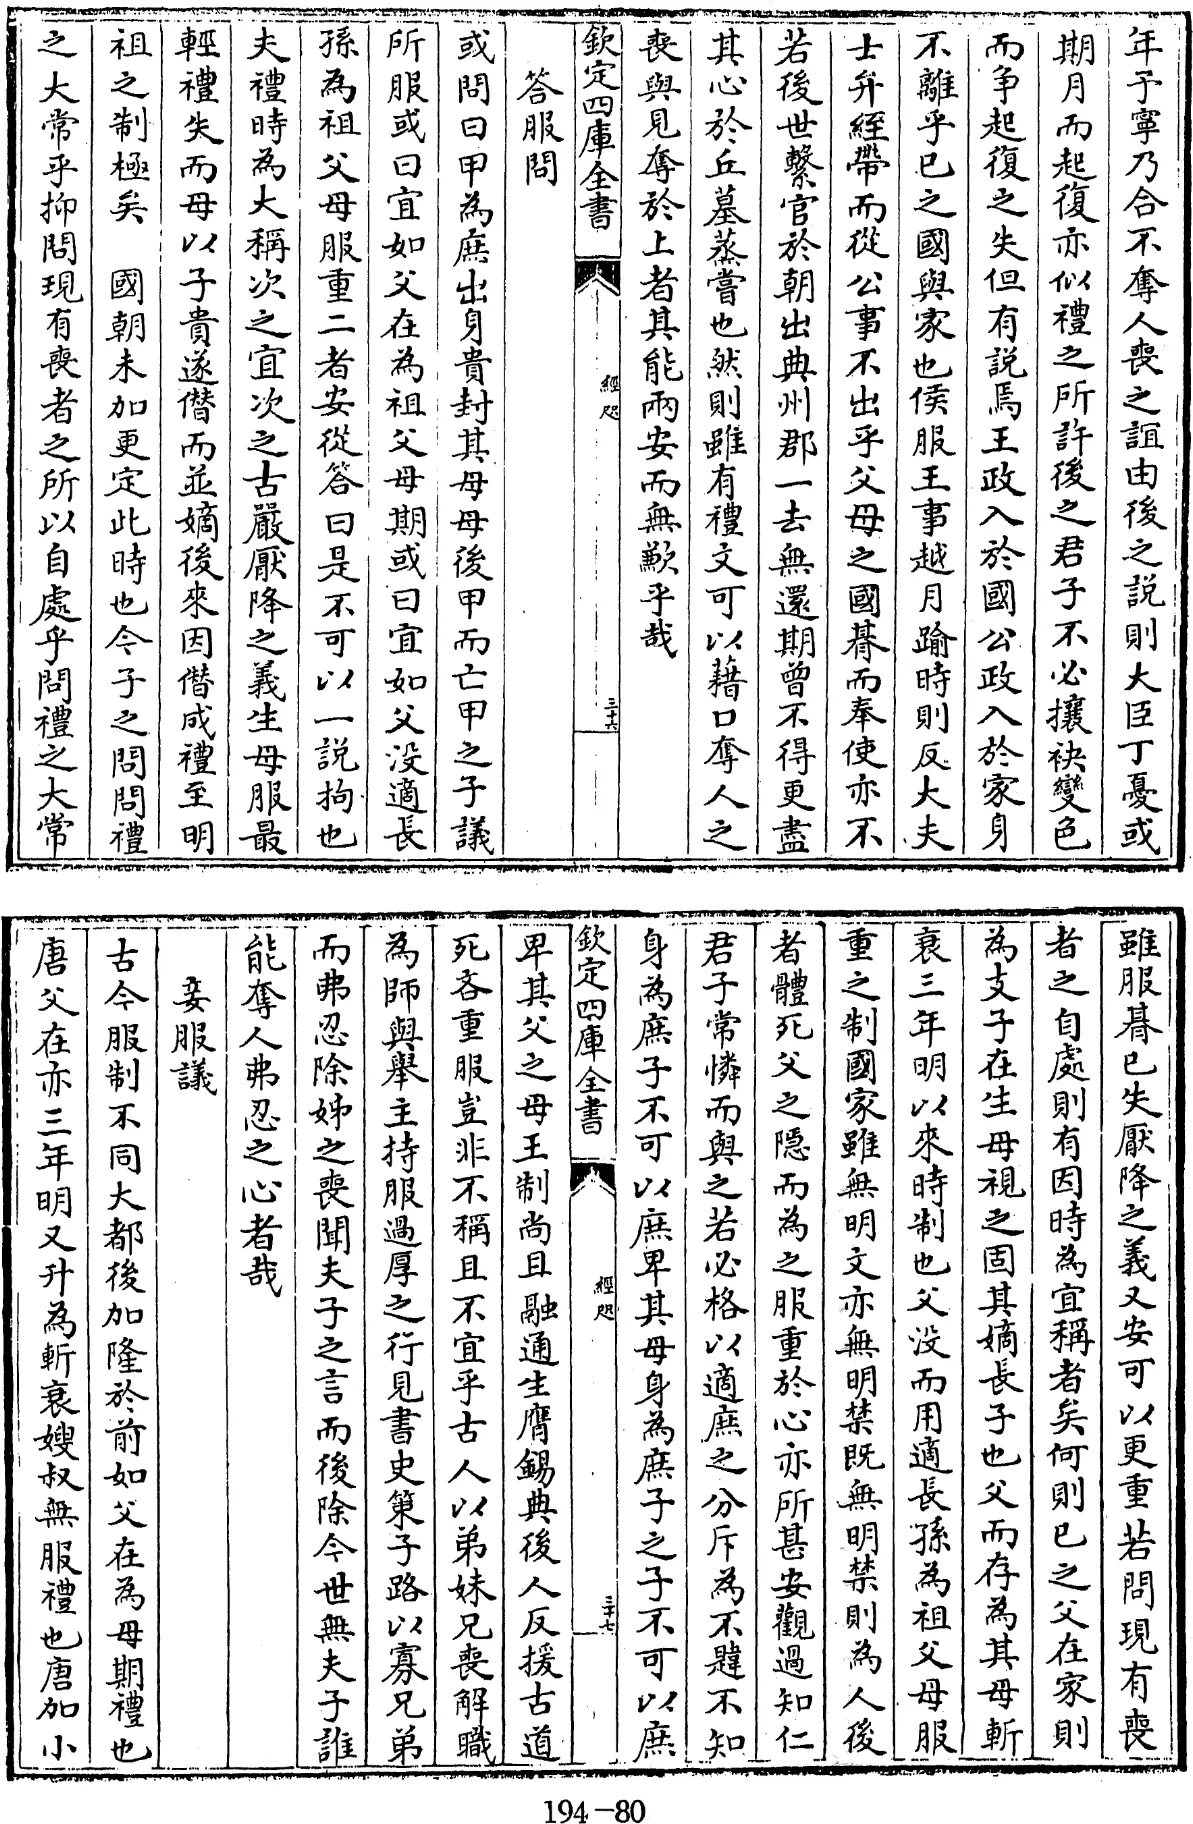 年于寧乃合不奪人喪之誼由後之說則大臣丁憂或
期月而起復亦似禮之所許後之君子不必攘袂變色
而争起復之失但有説焉王政入於國公政入於家身
不離乎已之國與家也侯服王事越月踰時則反大夫
士弁絰帶而從公事不出乎父母之國朞而奉使亦不
若後世繫官於朝出典州郡一去無還期曾不得更盡
其心於丘墓蒸嘗也然則雖有禮文可以藉口奪人之
喪與見奪於上者其能兩安而無歉乎哉
欽定四庫全書
經咫
三十六
答服問
或問曰甲為庶出身貴封其母母後甲而亡甲之子議
所服或曰宜如父在為祖父母期或曰宜如父没適長
孫為祖父母服重二者安從答曰是不可以一説拘也
夫禮時為大稱次之宜次之古嚴厭降之義生母服最
輕禮失而母以子貴遂僭而並嫡後來因僭成禮至明
祖之制極矣　國朝未加更定此時也今子之問問禮
之大常乎抑問現有喪者之所以自處乎問禮之大常
雖服朞已失厭降之義又安可以更重若問現有喪
者之自處則有因時為宜稱者矣何則已之父在家則
為支子在生母視之固其嫡長子也父而存為其母斬
衰三年明以來時制也父没而用適長孫為祖父母服
重之制國家雖無明文亦無明禁既無明禁則為人後
者體死父之隱而為之服重於心亦所甚安觀過知仁
君子常憐而與之若必格以適庶之分斥為不韙不知
身為庶子不可以庶卑其母身為庶子之子不可以庶
欽定四庫全書
經咫
三十七
卑其父之母王制尚且融通生膺錫典後人反援古道
死吝重服豈非不稱且不宜乎古人以弟妹兄喪解職
為師與舉主持服過厚之行見書史策子路以寡兄弟
而弗忍除姊之喪聞夫子之言而後除今世無夫子誰
能奪人弗忍之心者哉
妾服議
古今服制不同大都後加隆於前如父在為母期禮也
唐父在亦三年明又升為斬衰嫂叔無服禮也唐加小
194-80